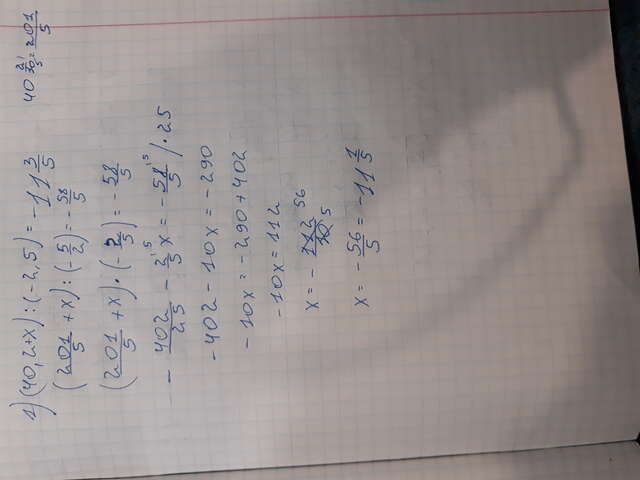 1) (40,2+x) : (-2,5) = -11 3/5 40 2/10 = 201/5
(201/5 + x) : (-5/2) = -58/5
(201/5 + x) · (-2/5) = -58/5
-402/25 - 2/5 x = -58/5 / · 25
-402 - 10x = -290
-10x = -290 + 402
-10x = 112
x = -112/10 56 5
x = -56/5 = -11 1/5